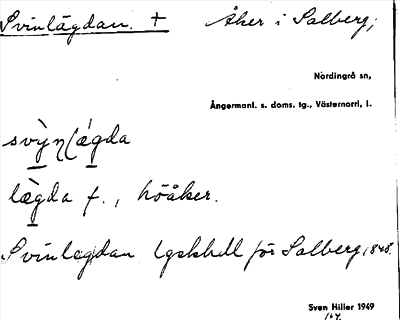 Svinlägdan. + Åker i Salberg;
Nordingrå sn,
Ångermanl. s. doms. tg., Västernorrl. l.
svỳn(lǽgda
lægda f., höåker.
Svinlägdan Lgskhdl för Salberg, 1848.
Sven Hiller 1949